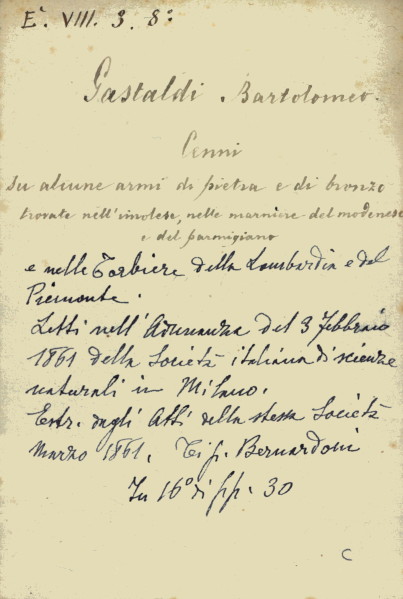 E. VIII. 3. 8:
Gastaldi. Bartolomeo.
Cenni
Su alcune armi di pietra e di bronzo
trovate nell'imolese, nelle marniere del modenese
e del parmigiano
e nelle Torbiere della Lombardia e del
Piemonte.
Letti nell'Adunanza del 3 Febbraio
1861 della Società italiana di scienze
naturali in Milano.
Estr. dagli Atti della stessa Società
Marzo 1861. Tip. Bernardoni
In 16° di pp. 30
C